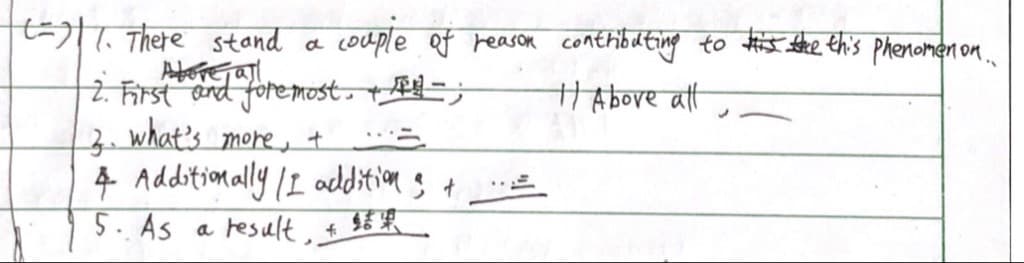 (二) 1. There stand a couple of reason contributing to this phenomenon..
Above all
2. First and foremost, + 原因一; // Above all, __
3. what's more, + ...二
4 Additionally / I addition, + ...三
5. As a result, + 结果